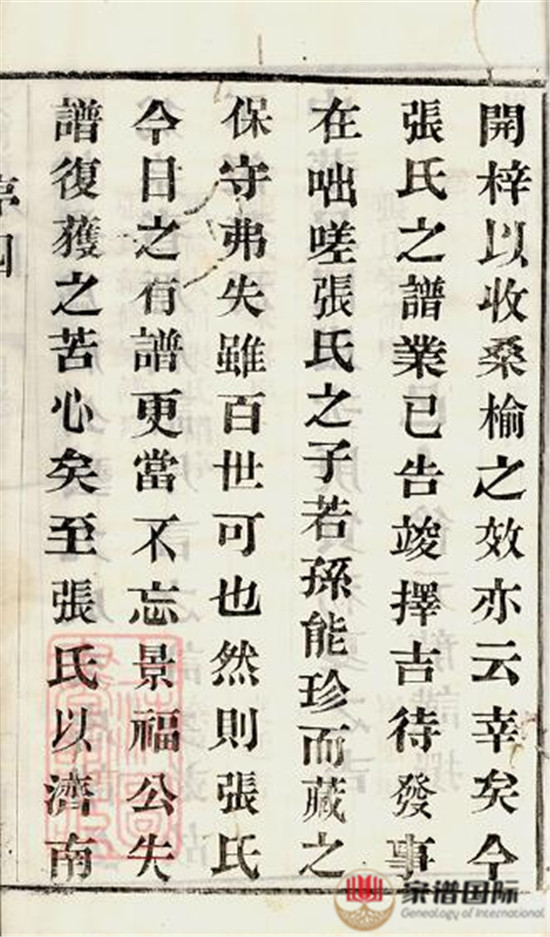 開梓以收桑榆之效亦云幸矣今
張氏之譜業已告竣擇吉待發事
在咄嗟張氏之子若孫能珍而藏之
保守弗失雖百世可也然則張氏
今日之有譜更當不忘景福公失
譜復獲之苦心矣至張氏以濟南
家谱国际
Genealogy of International